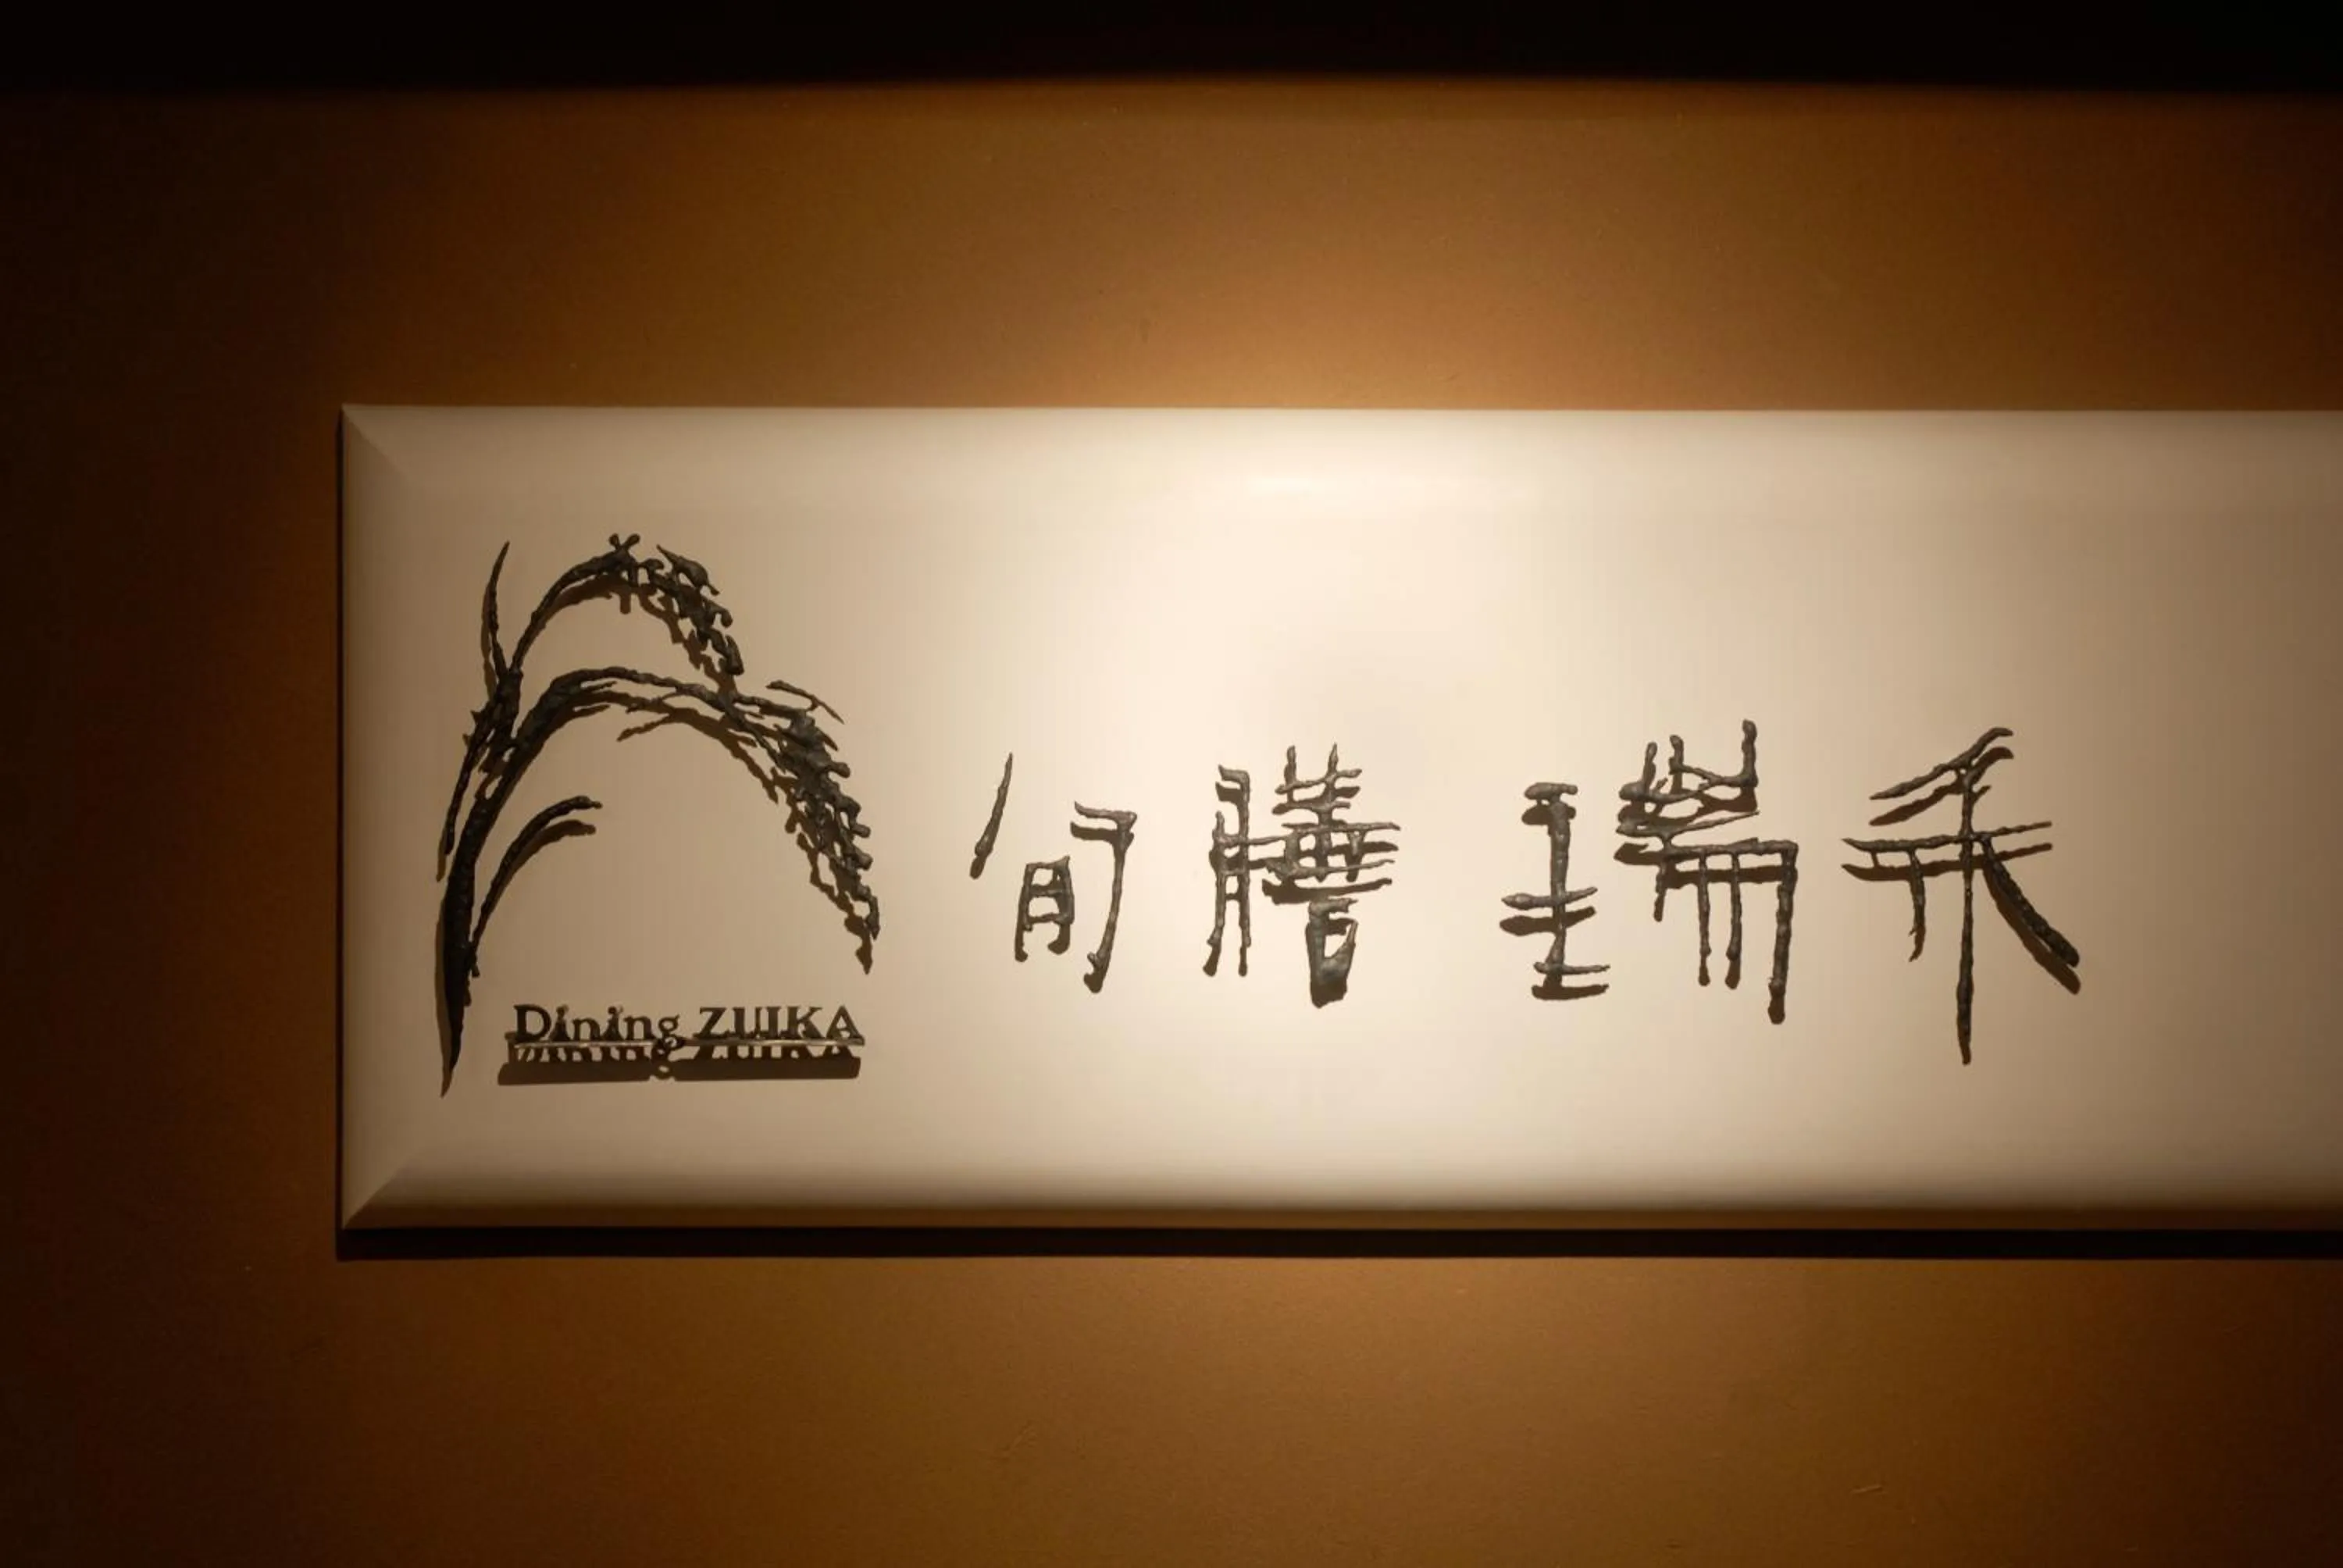 Dining ZUIKA
旬膳 瑞禾